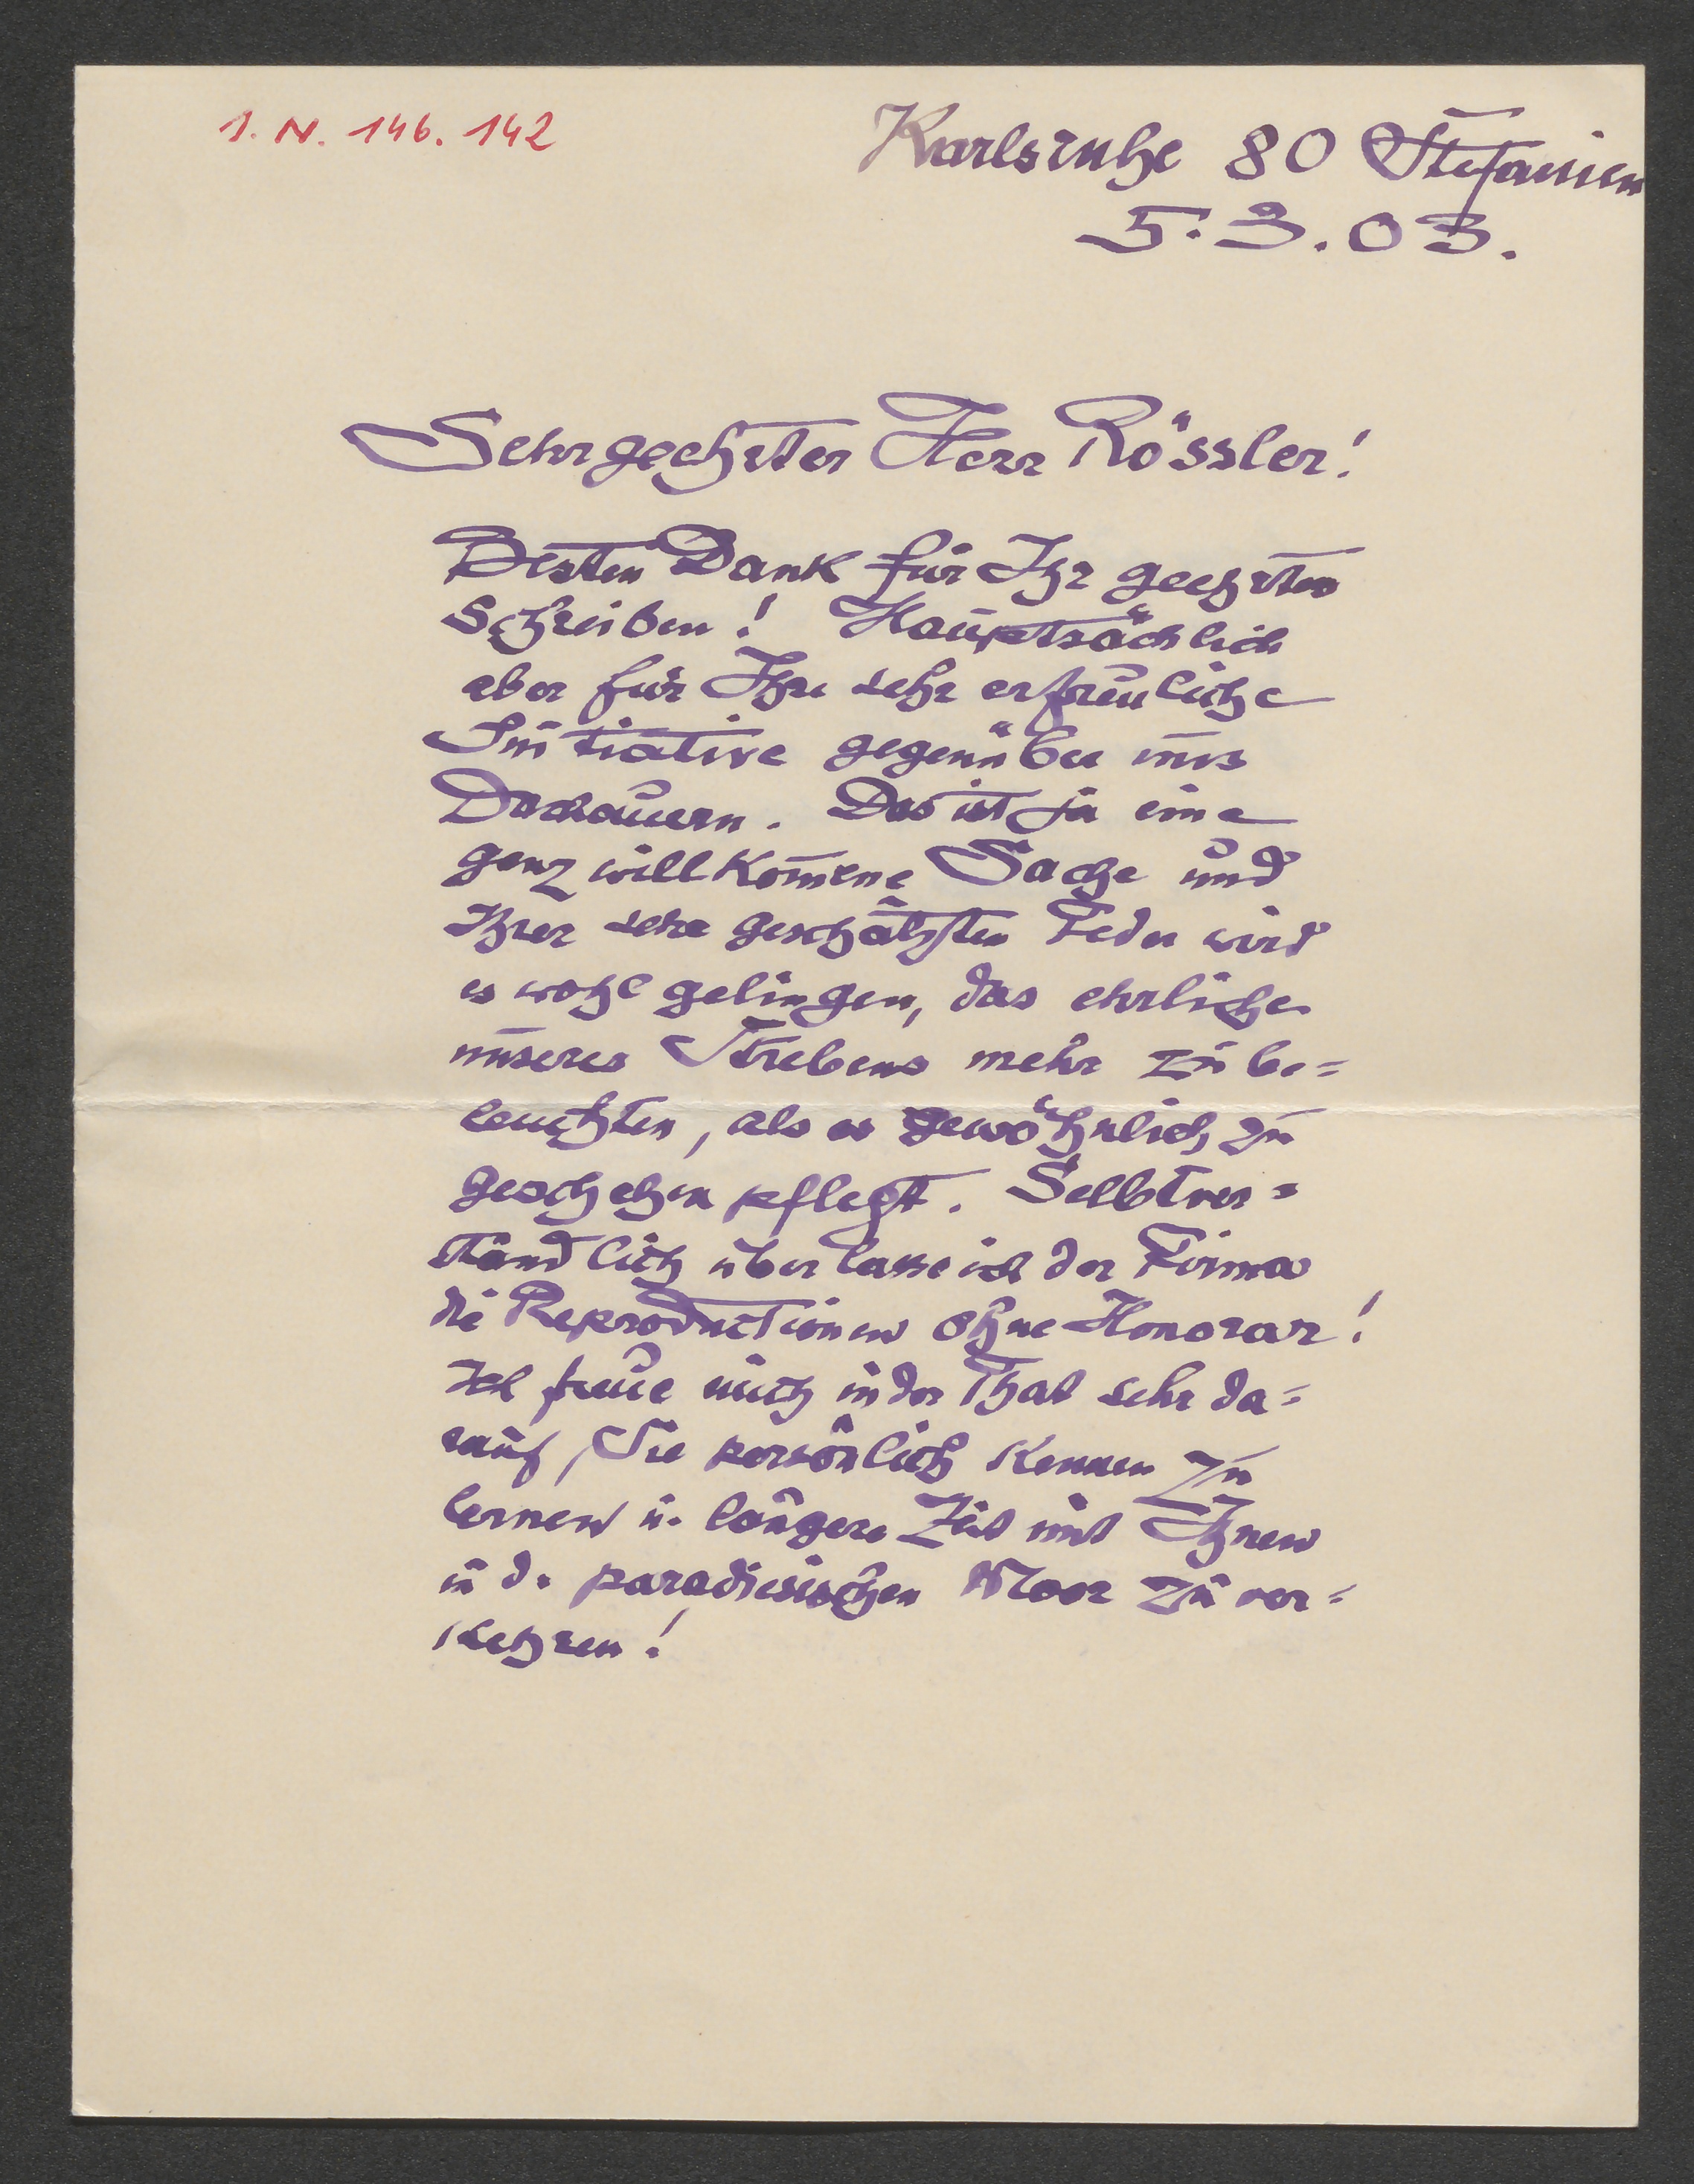 I. N. 146. 142
Karlsruhe 80 Stefanien
5. 3. 03.
Sehrgeehrter Herr Rössler!
Besten Dank für Ihr geehrtes
Schreiben! Hauptsächlich
aber für Ihre sehr erfreuliche
Initiative gegenüber uns
Dachauern. Das ist ja eine
ganz willkom̅ene Sache und
Ihrer sehr geschätzten Feder wird
es wohl gelingen, das ehrliche
unseres Strebens mehr zu be=
leuchten, als es gewöhnlich zu
geschehen pflegt. Selbstver=
ständlich überlasse ich der Firma
die Reproductionen ohne Honorar!
Ich freue mich in der That sehr da=
rauf, Sie persönlich kennen zu
lernen u. längere Zeit mit Ihnen
in d. paradiesischen Moor zu ver=
kehren!